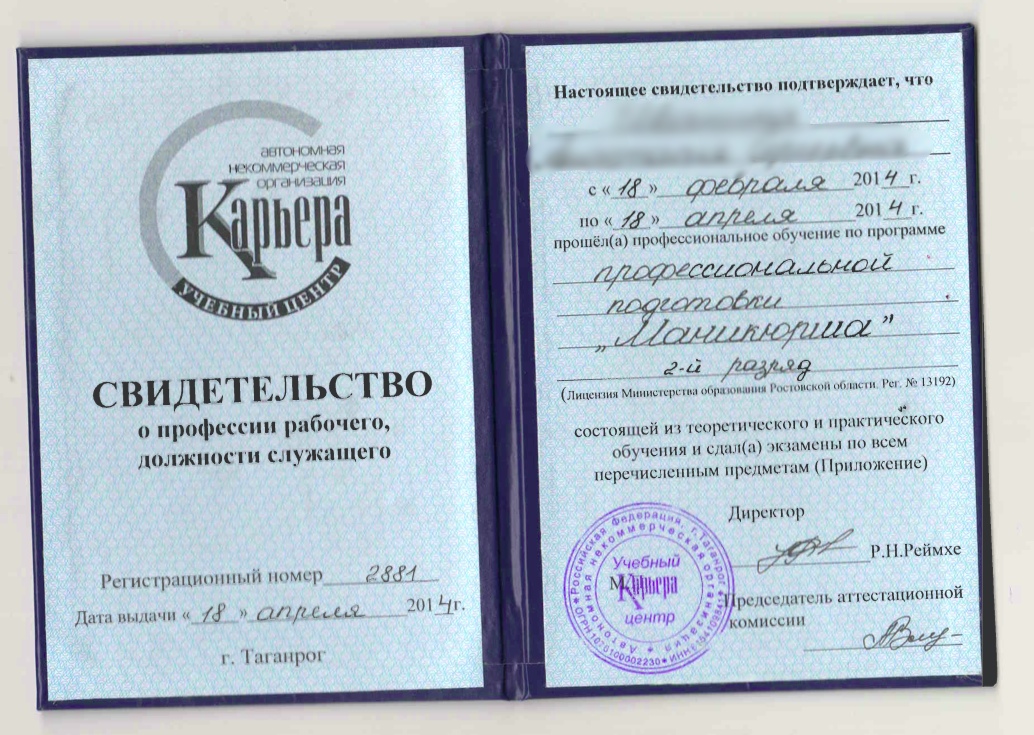 автономная
некоммерческая
организация
Карьера
УЧЕБНЫЙ ЦЕНТР
СВИДЕТЕЛЬСТВО
о профессии рабочего,
должности служащего
Регистрационный номер 2881
Дата выдачи « 18 » апреля 2014г.
г. Таганрог
Настоящее свидетельство подтверждает, что
с « 18 » февраля 2014 г.
по « 18 » апреля 2014 г.
прошёл(а) профессиональное обучение по программе
профессиональной
подготовки
„Маникюрша”
2-й разряд
(Лицензия Министерства образования Ростовской области. Рег. № 13192)
состоящей из теоретического и практического
обучения и сдал(а) экзамены по всем
перечисленным предметам (Приложение)
Директор
Р.Н.Реймхе
Председатель аттестационной
комиссии
Российская Федерация, г.Таганрог
Автономная некоммерческая организация
Учебный
Карьера
центр